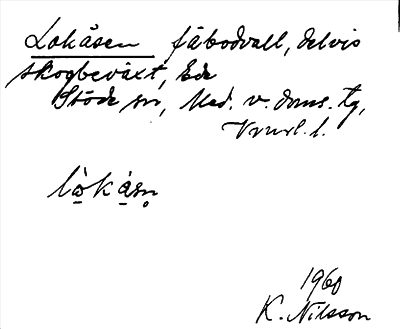 Lokåsen fäbodvall, delvis
skogbeväxt, Ede
Stöde sn, Med. v. doms. tg,
Vnorl. l.
lò̠kȧ̠sn̥
1960
K. Nilsson